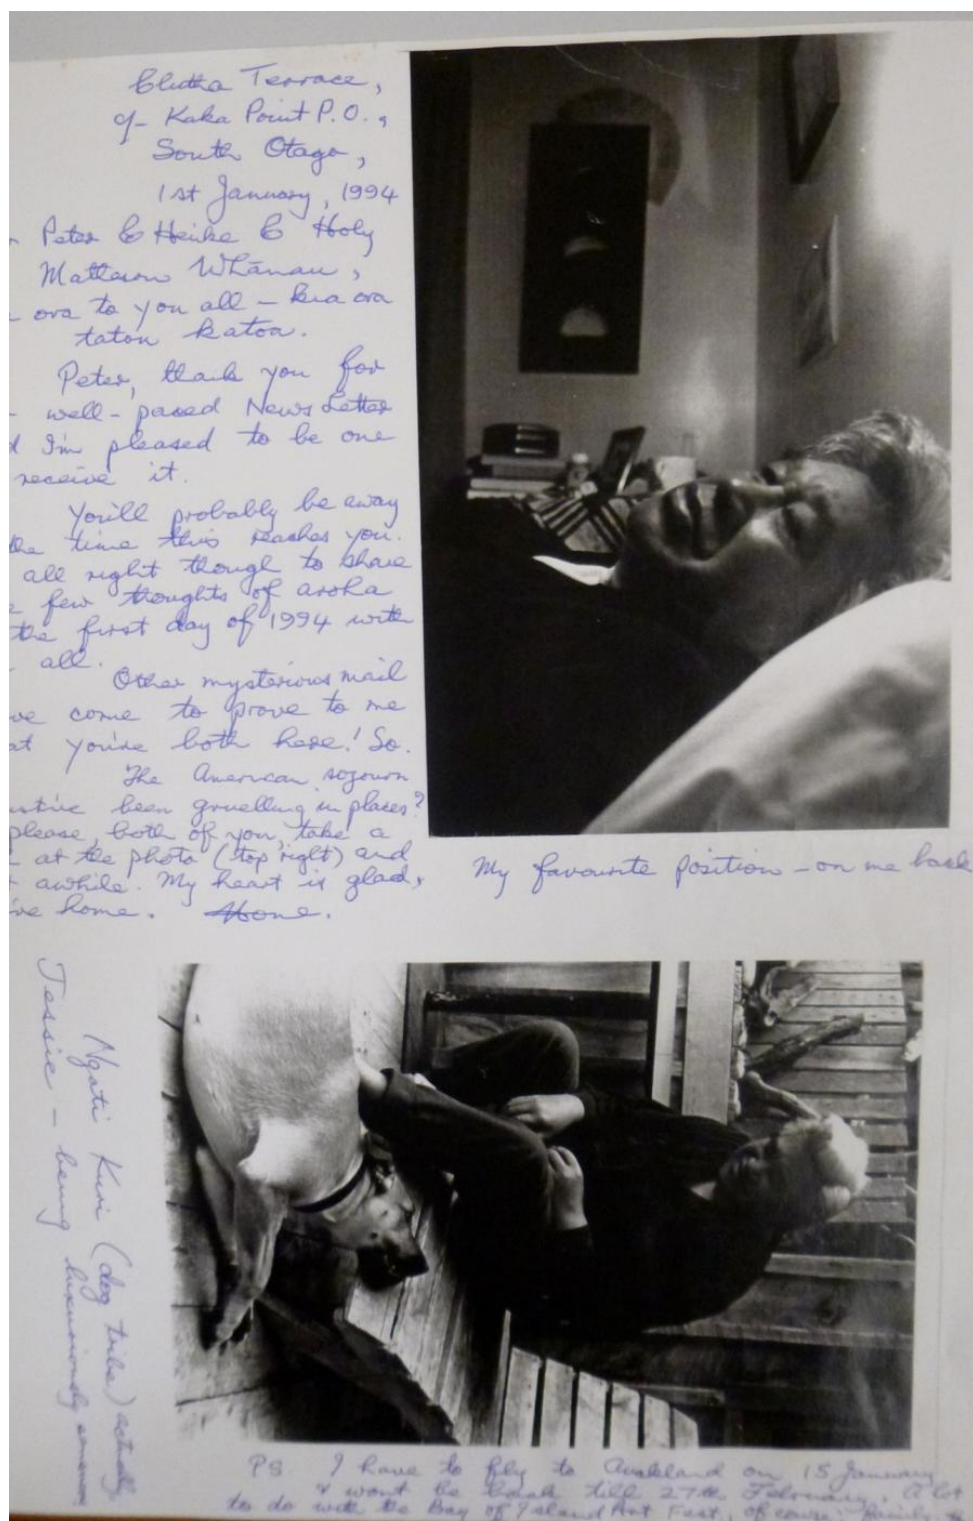 Clutha Terrace,
c/- Kaka Point P.O.,
South Otago,
1st January, 1994
Peter & Heinke & Holy
Matteson Whānau,
ora to you all – kia ora
tatou katoa.
Peter, thank you for
well-paced News Letter
I'm pleased to be one
receive it.
You'll probably be away
the time this reaches you.
all right though to share
few thoughts of aroha
the first day of 1994 with
all.
Other mysterious mail
come to prove to me
you're both here! So.
The American sojourn
been gruelling in places?
please, both of you, take a
at the photo (top right) and
awhile. My heart is glad,
home. Home.
My favourite position – on me back
Ngati Kuri (dog tribe) actually
Jessie – being luxuriously
PS I have to fly to Auckland on 15 January
& won't be back till 27th February. A lot
to do with the Bay of Island Art Fest, of course family &